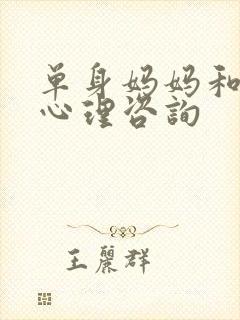 单身妈妈和
心理咨询
王丽群